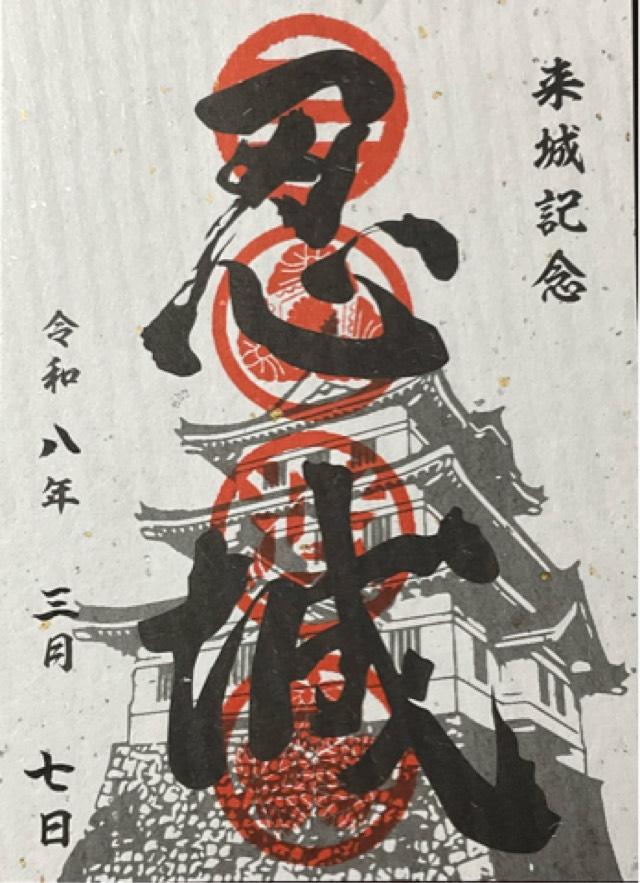 来城記念
忍城
令和八年三月七日